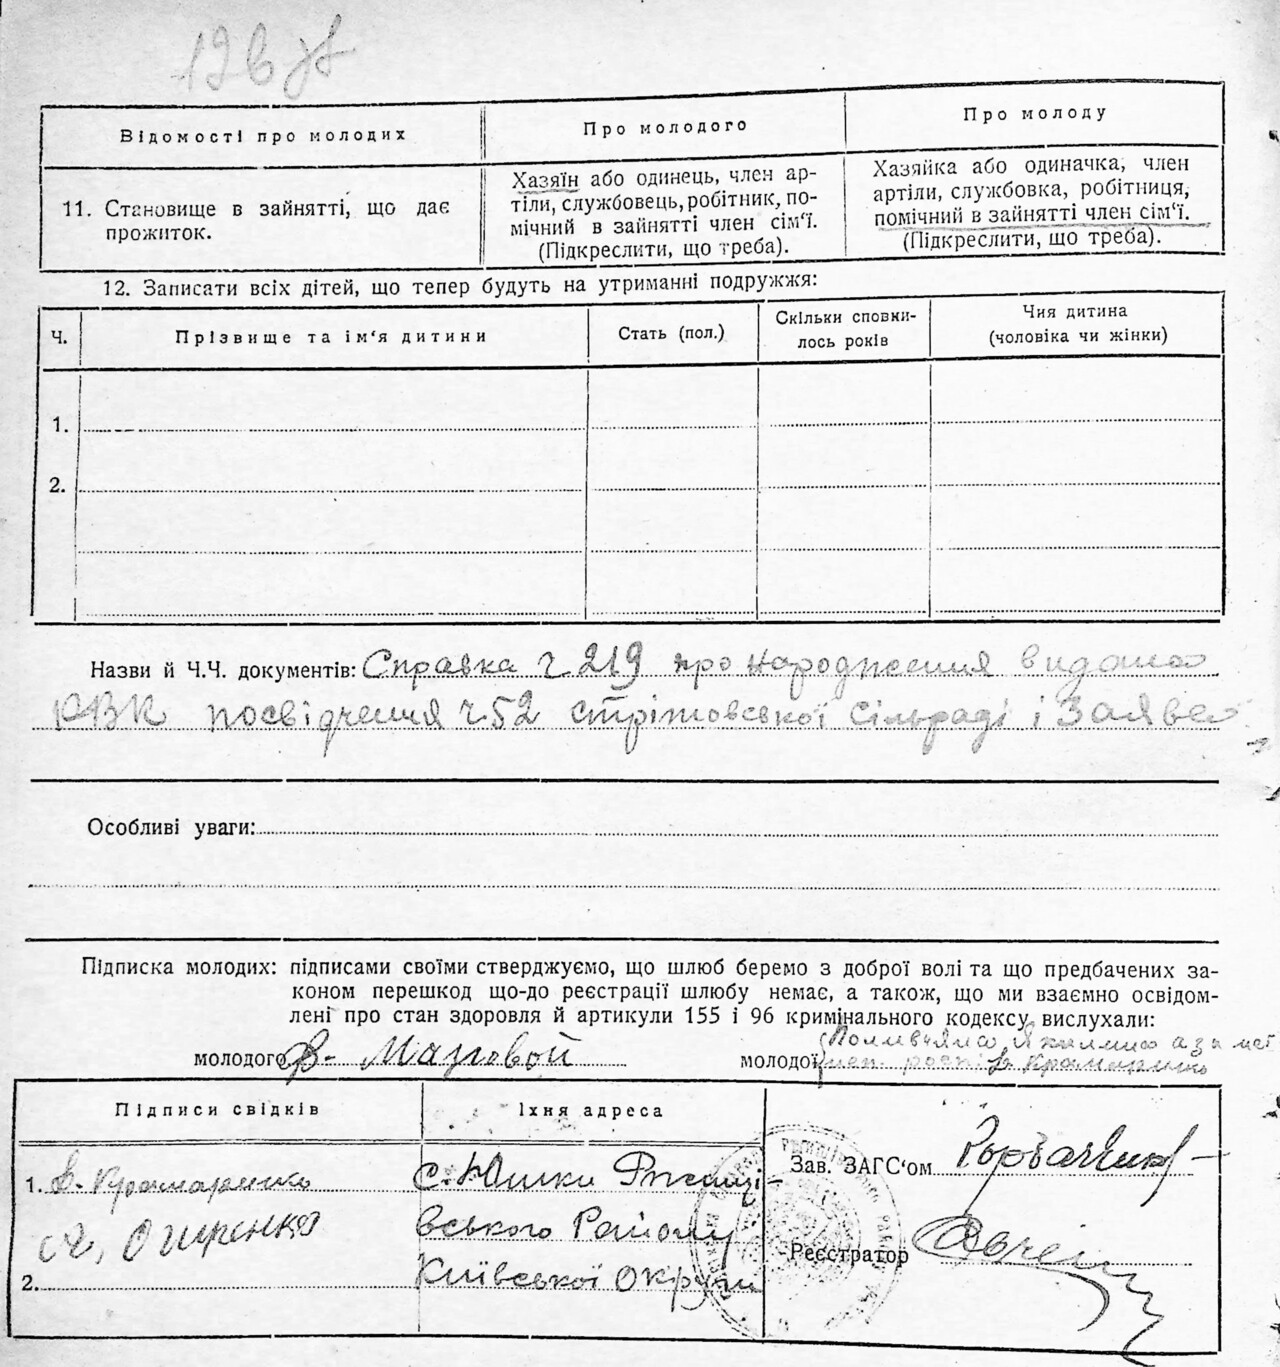 Відомості про молодих
Про молодого
Про молоду
11. Становище в зайнятті, що дає прожиток.
Хазяїн або одинець, член ар-
тілі, службовець, робітник, по-
мічний в зайнятті член сім'ї.
(Підкреслити, що треба).
Хазяйка або одиначка, член
артілі, службовка, робітниця,
помічний в зайнятті член сім'ї.
(Підкреслити, що треба).
12. Записати всіх дітей, що тепер будуть на утриманні подружжя:
Ч.
Прізвище та ім'я дитини
Стать (пол.)
Скільки сповни-
лось років
Чия дитина
(чоловіка чи жінки)
1.
2.
Назви й Ч.Ч. документів: Справка ч 219 про народження видана
РВК посвідчення ч 52 Стрітовської сільради і Заява
Особливі уваги:
Підписка молодих: підписами своїми стверджуємо, що шлюб беремо з доброї волі та що предбачених за-
коном перешкод що-до реєстрації шлюбу немає, а також, що ми взаємно освідом-
лені про стан здоровля й артикули 155 і 96 кримінального кодексу вислухали:
молодого Мазговой
молодої Крамаренко
Підписи свідків
Їхня адреса
1. В. Крамаренко
с. Юшки Ржищі-
Огиренко
вського Району
2.
Київської округи
Зав. ЗАГС'ом Горбаченко
Реєстратор